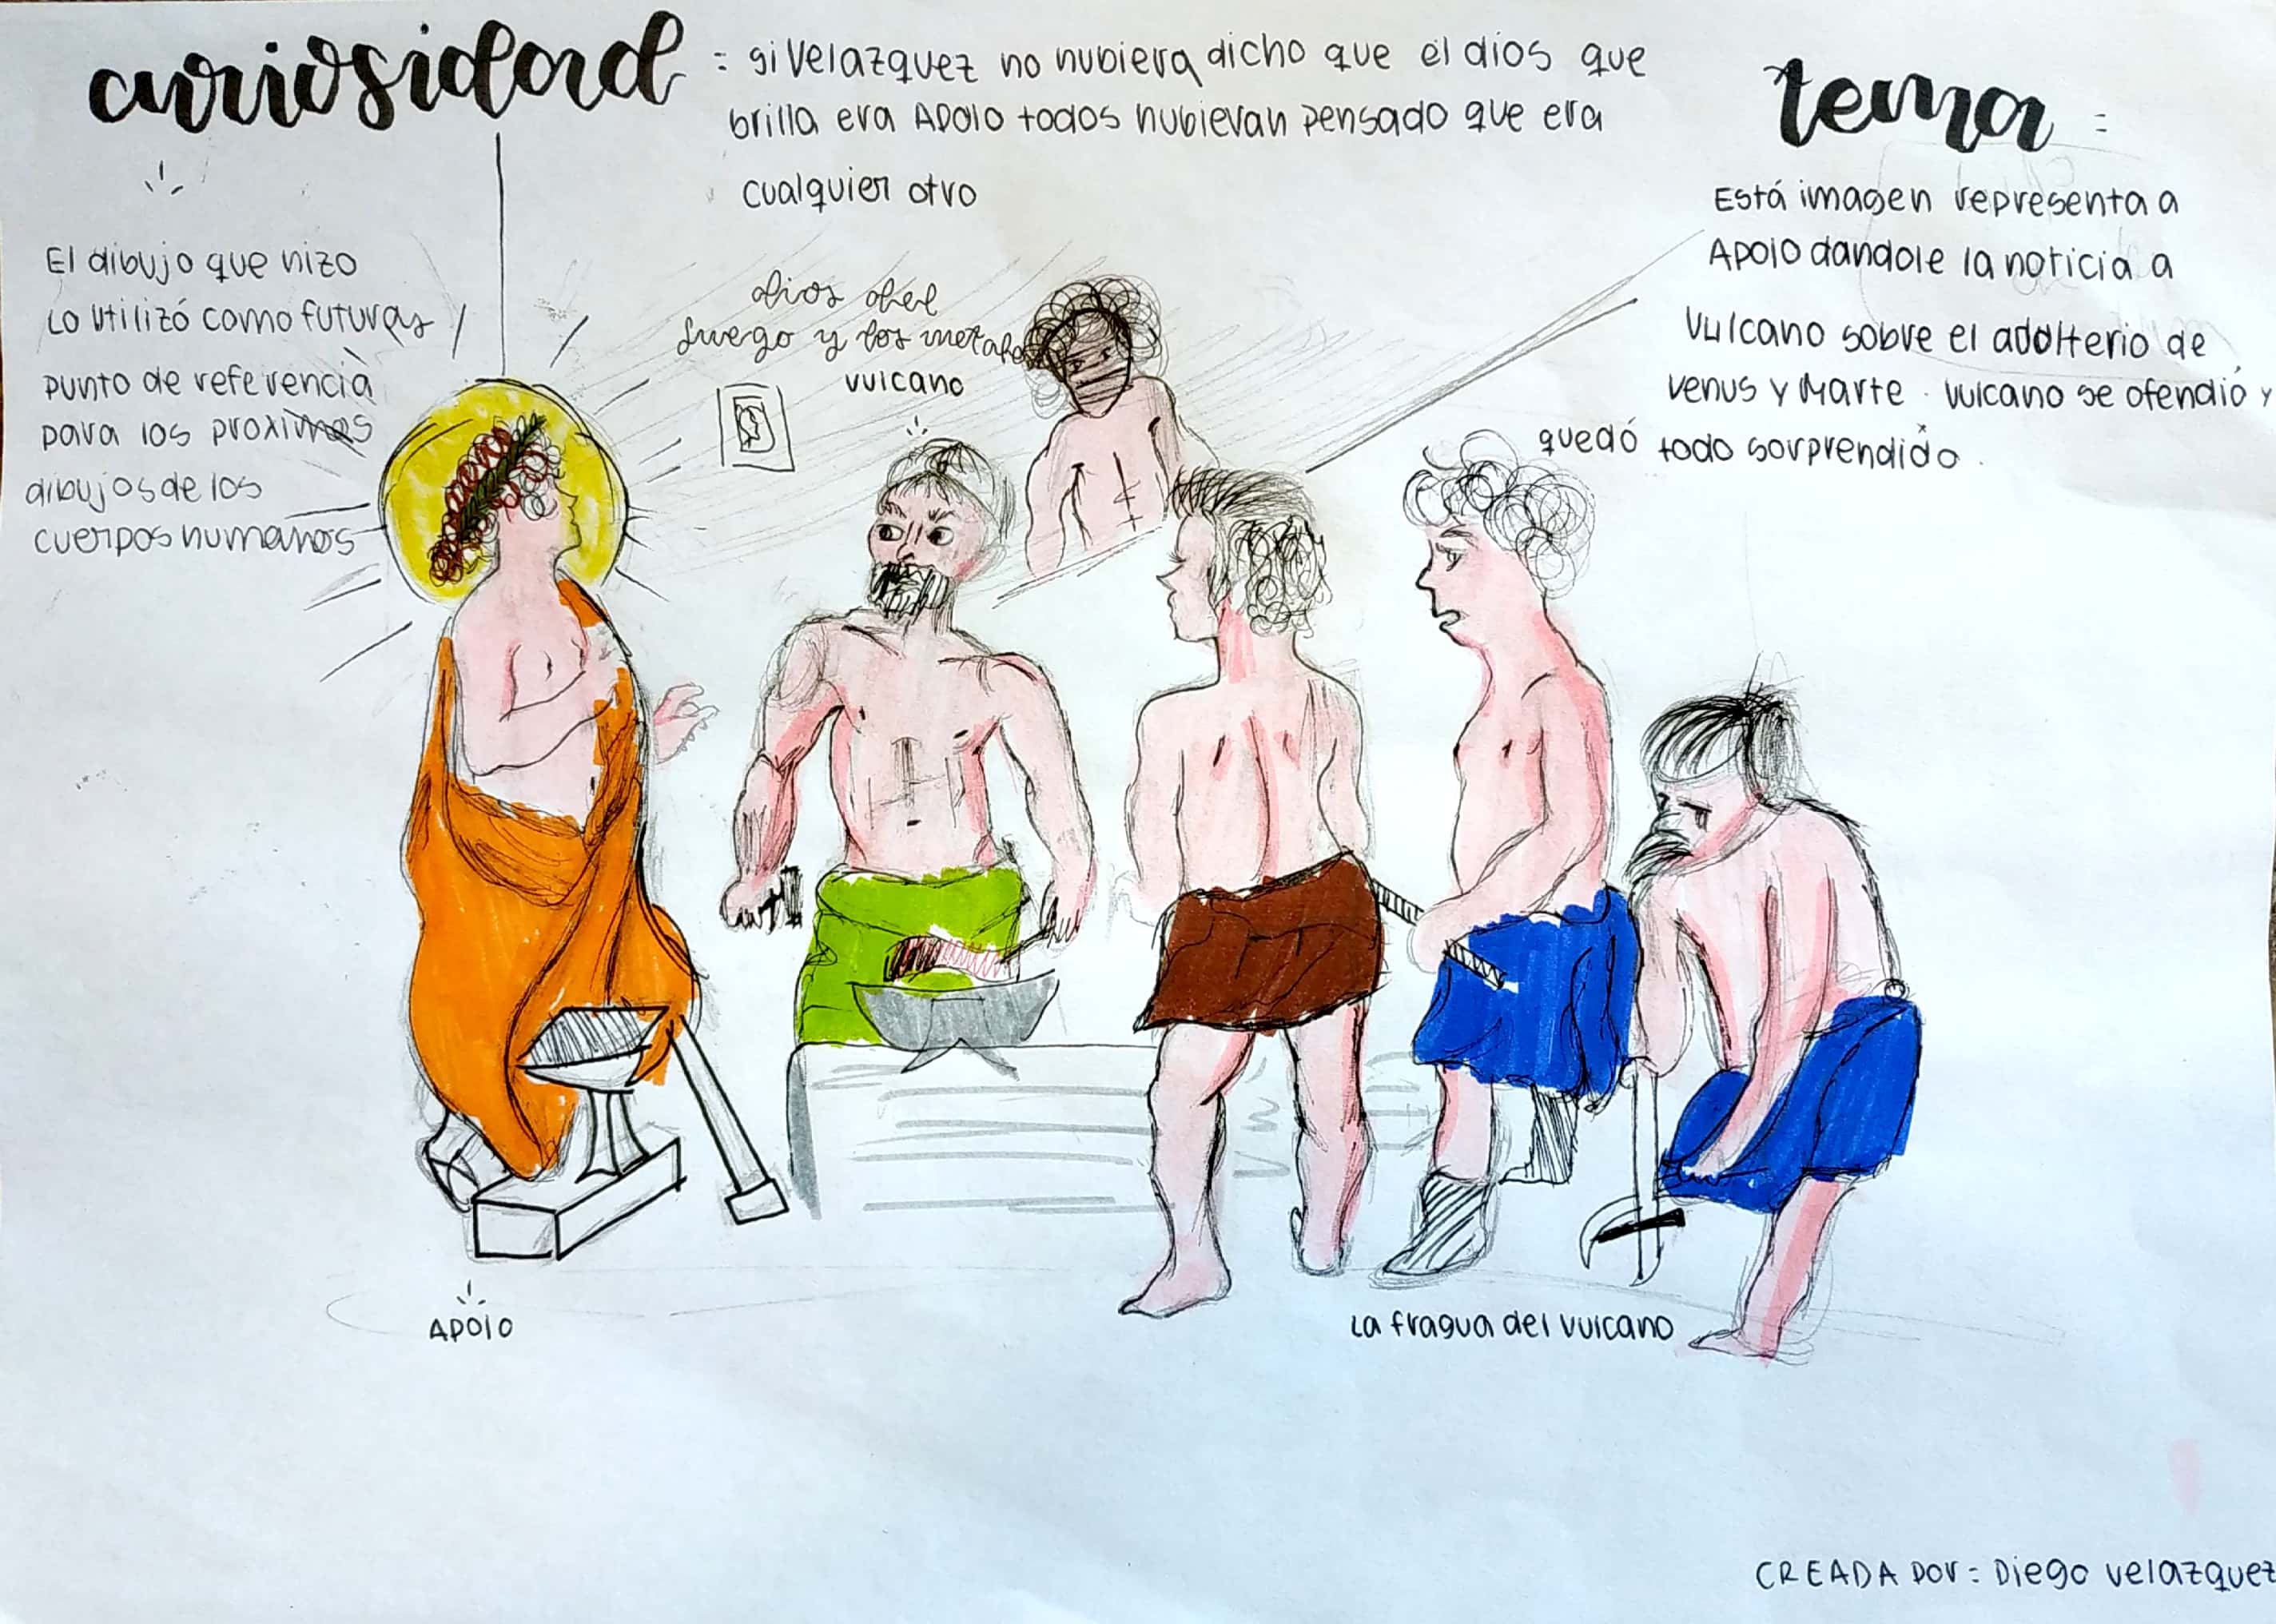 curiosidad = si Velazquez no hubiera dicho que el dios que
brilla era Apolo todos hubieran pensado que era
cualquier otro
tema =
Está imagen representa a
Apolo dandole la noticia a
Vulcano sobre el adulterio de
Venus y Marte. Vulcano se ofendió y
quedó todo sorprendido.
El dibujo que hizo
Lo utilizó como futuras
punto de referencia
para los proximos
dibujos de los
cuerpos humanos
dios del
fuego y los metales
vulcano
Apolo
La fragua del vulcano
CREADA por = Diego velazquez